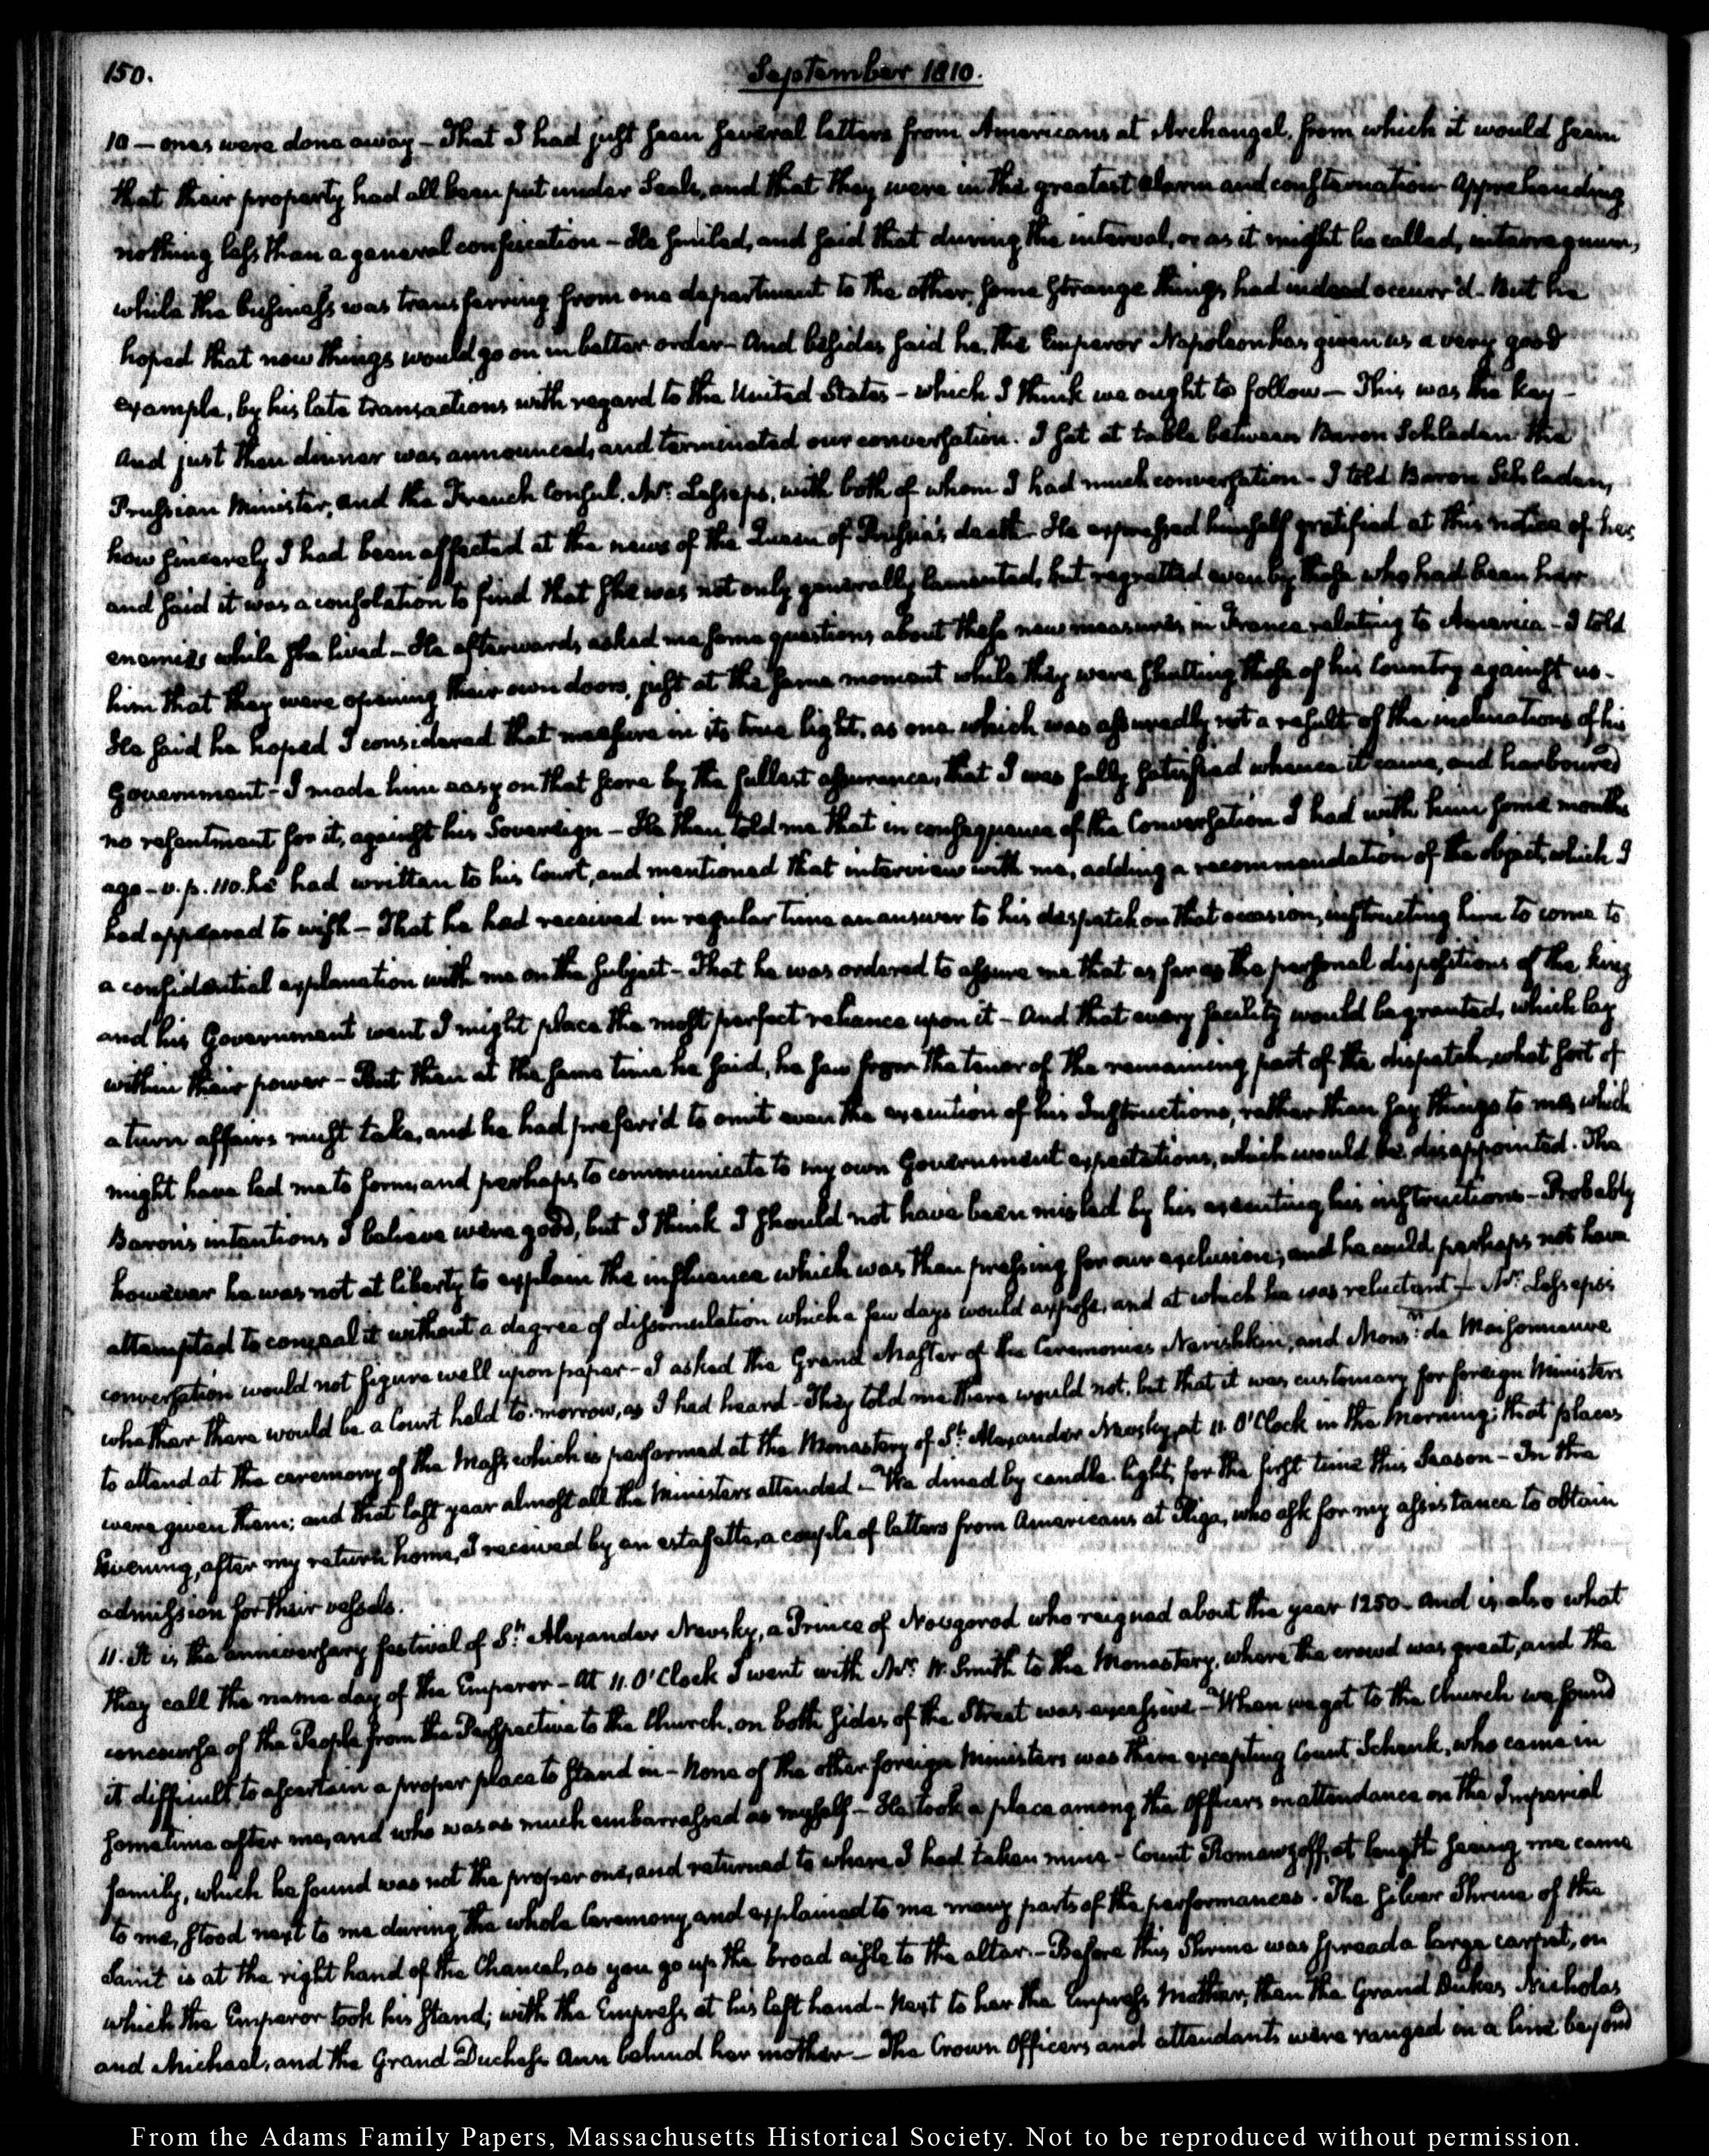 150.
September 1810.
10 — ones were done away – That I had just seen several letters from Americans at Archangel, from which it would seem
that their property had all been put under Seals, and that they were in the greatest alarm and consternation apprehending
nothing less than a general confiscation – He smiled, and said that during the interval, or as it might be called, interregnum,
while the business was transferring from one department to the other, some strange things had indeed occurr'd. But he
hoped that now things would go on in better order – And besides said he, the Emperor Napoleon has given us a very good
example, by his late transactions with regard to the United States – which I think we ought to follow — This was the key –
And just then dinner was announced, and terminated our conversation. I sat at table between Baron Schladen the
Prussian Minister, and the French Consul, Mr. Lesseps, with both of whom I had much conversation – I told Baron Schladen,
how sincerely I had been affected at the news of the Queen of Prussia's death – He expressed himself gratified at this notice of her
and said it was a consolation to find that she was not only generally lamented, but regretted even by those who had been her
enemies while she lived – He afterwards asked me some questions about these new measures in France relating to America – I told
him that they were opening their own doors, just at the same moment while they were shutting those of his Country against us –
He said he hoped I considered that measure in its true light, as one which was assuredly not a result of the inclinations of his
Government – I made him easy on that score by the fullest assurances, that I was fully satisfied whence it came, and harboured
no resentment for it, against his Sovereign – He then told me that in consequence of the Conversation I had with him some months
ago – v. p. 110. he had written to his Court, and mentioned that interview with me, adding a recommendation of the object, which I
had appeared to wish – That he had received in regular time an answer to his despatch on that occasion, instructing him to come to
a confidential explanation with me on the subject – That he was ordered to assure me that as far as the personal dispositions of the king
and his Government went I might place the most perfect reliance upon it – And that every facility would be granted, which lay
within their power – But then at the same time he said, he saw from the tenor of the remaining part of the dispatch, what sort of
a turn affairs must take, and he had preferr'd to omit even the execution of his Instructions, rather than say things to me, which
might have led me to form, and perhaps to communicate to my own Government expectations, which would be disappointed. The
Baron's intentions I believe were good, but I think I should not have been misled by his executing his instructions – Probably
however he was not at liberty to explain the influence which was then pressing for our exclusion; and he could perhaps not have
attempted to conceal it without a degree of dissimulation which a few days would expose, and at which he was reluctant – Mr. Lesseps's
conversation would not figure well upon paper – I asked the Grand Master of the Ceremonies Narishkin, and Monsr. de Maisonneuve
whether there would be a Court held to-morrow, as I had heard – They told me there would not, but that it was customary for foreign Ministers
to attend at the ceremony of the Mass which is performed at the Monastery of St. Alexander Newsky, at 11. O'Clock in the Morning; that places
were given them; and that last year almost all the Ministers attended – We dined by candle-light, for the first time this Season – In the
Evening, after my return home, I received by an estafette, a couple of letters from Americans at Riga, who ask for my assistance to obtain
admission for their vessels.
11. It is the anniversary festival of St. Alexander Newsky, a Prince of Novgorod who reigned about the year 1250 – and is also what
they call the name day of the Emperor – At 11. O'Clock I went with Mr. W. Smith to the Monastery, where the crowd was great, and the
concourse of the People from the Perspective to the Church, on both sides of the Street was excessive – When we got to the Church we found
it difficult to ascertain a proper place to stand in – None of the other foreign Ministers was there excepting Count Schenk, who came in
sometime after me, and who was as much embarrassed as myself – He took a place among the Officers in attendance on the Imperial
family, which he found was not the proper one, and returned to where I had taken mine – Count Romanzoff, at length seeing me came
to me, stood next to me during the whole Ceremony, and explained to me many parts of the performances. The silver Shrine of the
Saint is at the right hand of the Chancel, as you go up the broad aisle to the altar – Before this Shrine was spread a large carpet, on
which the Emperor took his stand; with the Empress at his left hand – Next to her the Empress Mother, then the Grand Dukes Nicholas
and Michael, and the Grand Duchess Ann behind her mother – The Crown Officers and attendants were ranged in a line beyond
From the Adams Family Papers, Massachusetts Historical Society. Not to be reproduced without permission.